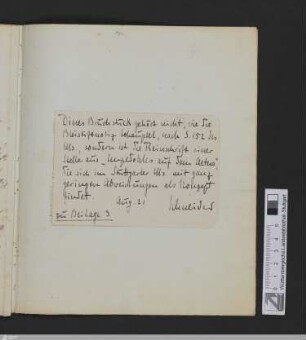 "Dieses Bruchstück gehört nicht, wie die
Bleistiftnotiz behauptet, nach S. 152 der
Hs., sondern ist die Reinschrift einer
Stelle aus
die sich im Stuttgarter Ms. mit ganz
geringen Abweichungen als Konzept
findet.
Aug. 21
zu Beilage 3
Württembergische Landesbibliothek Stuttgart